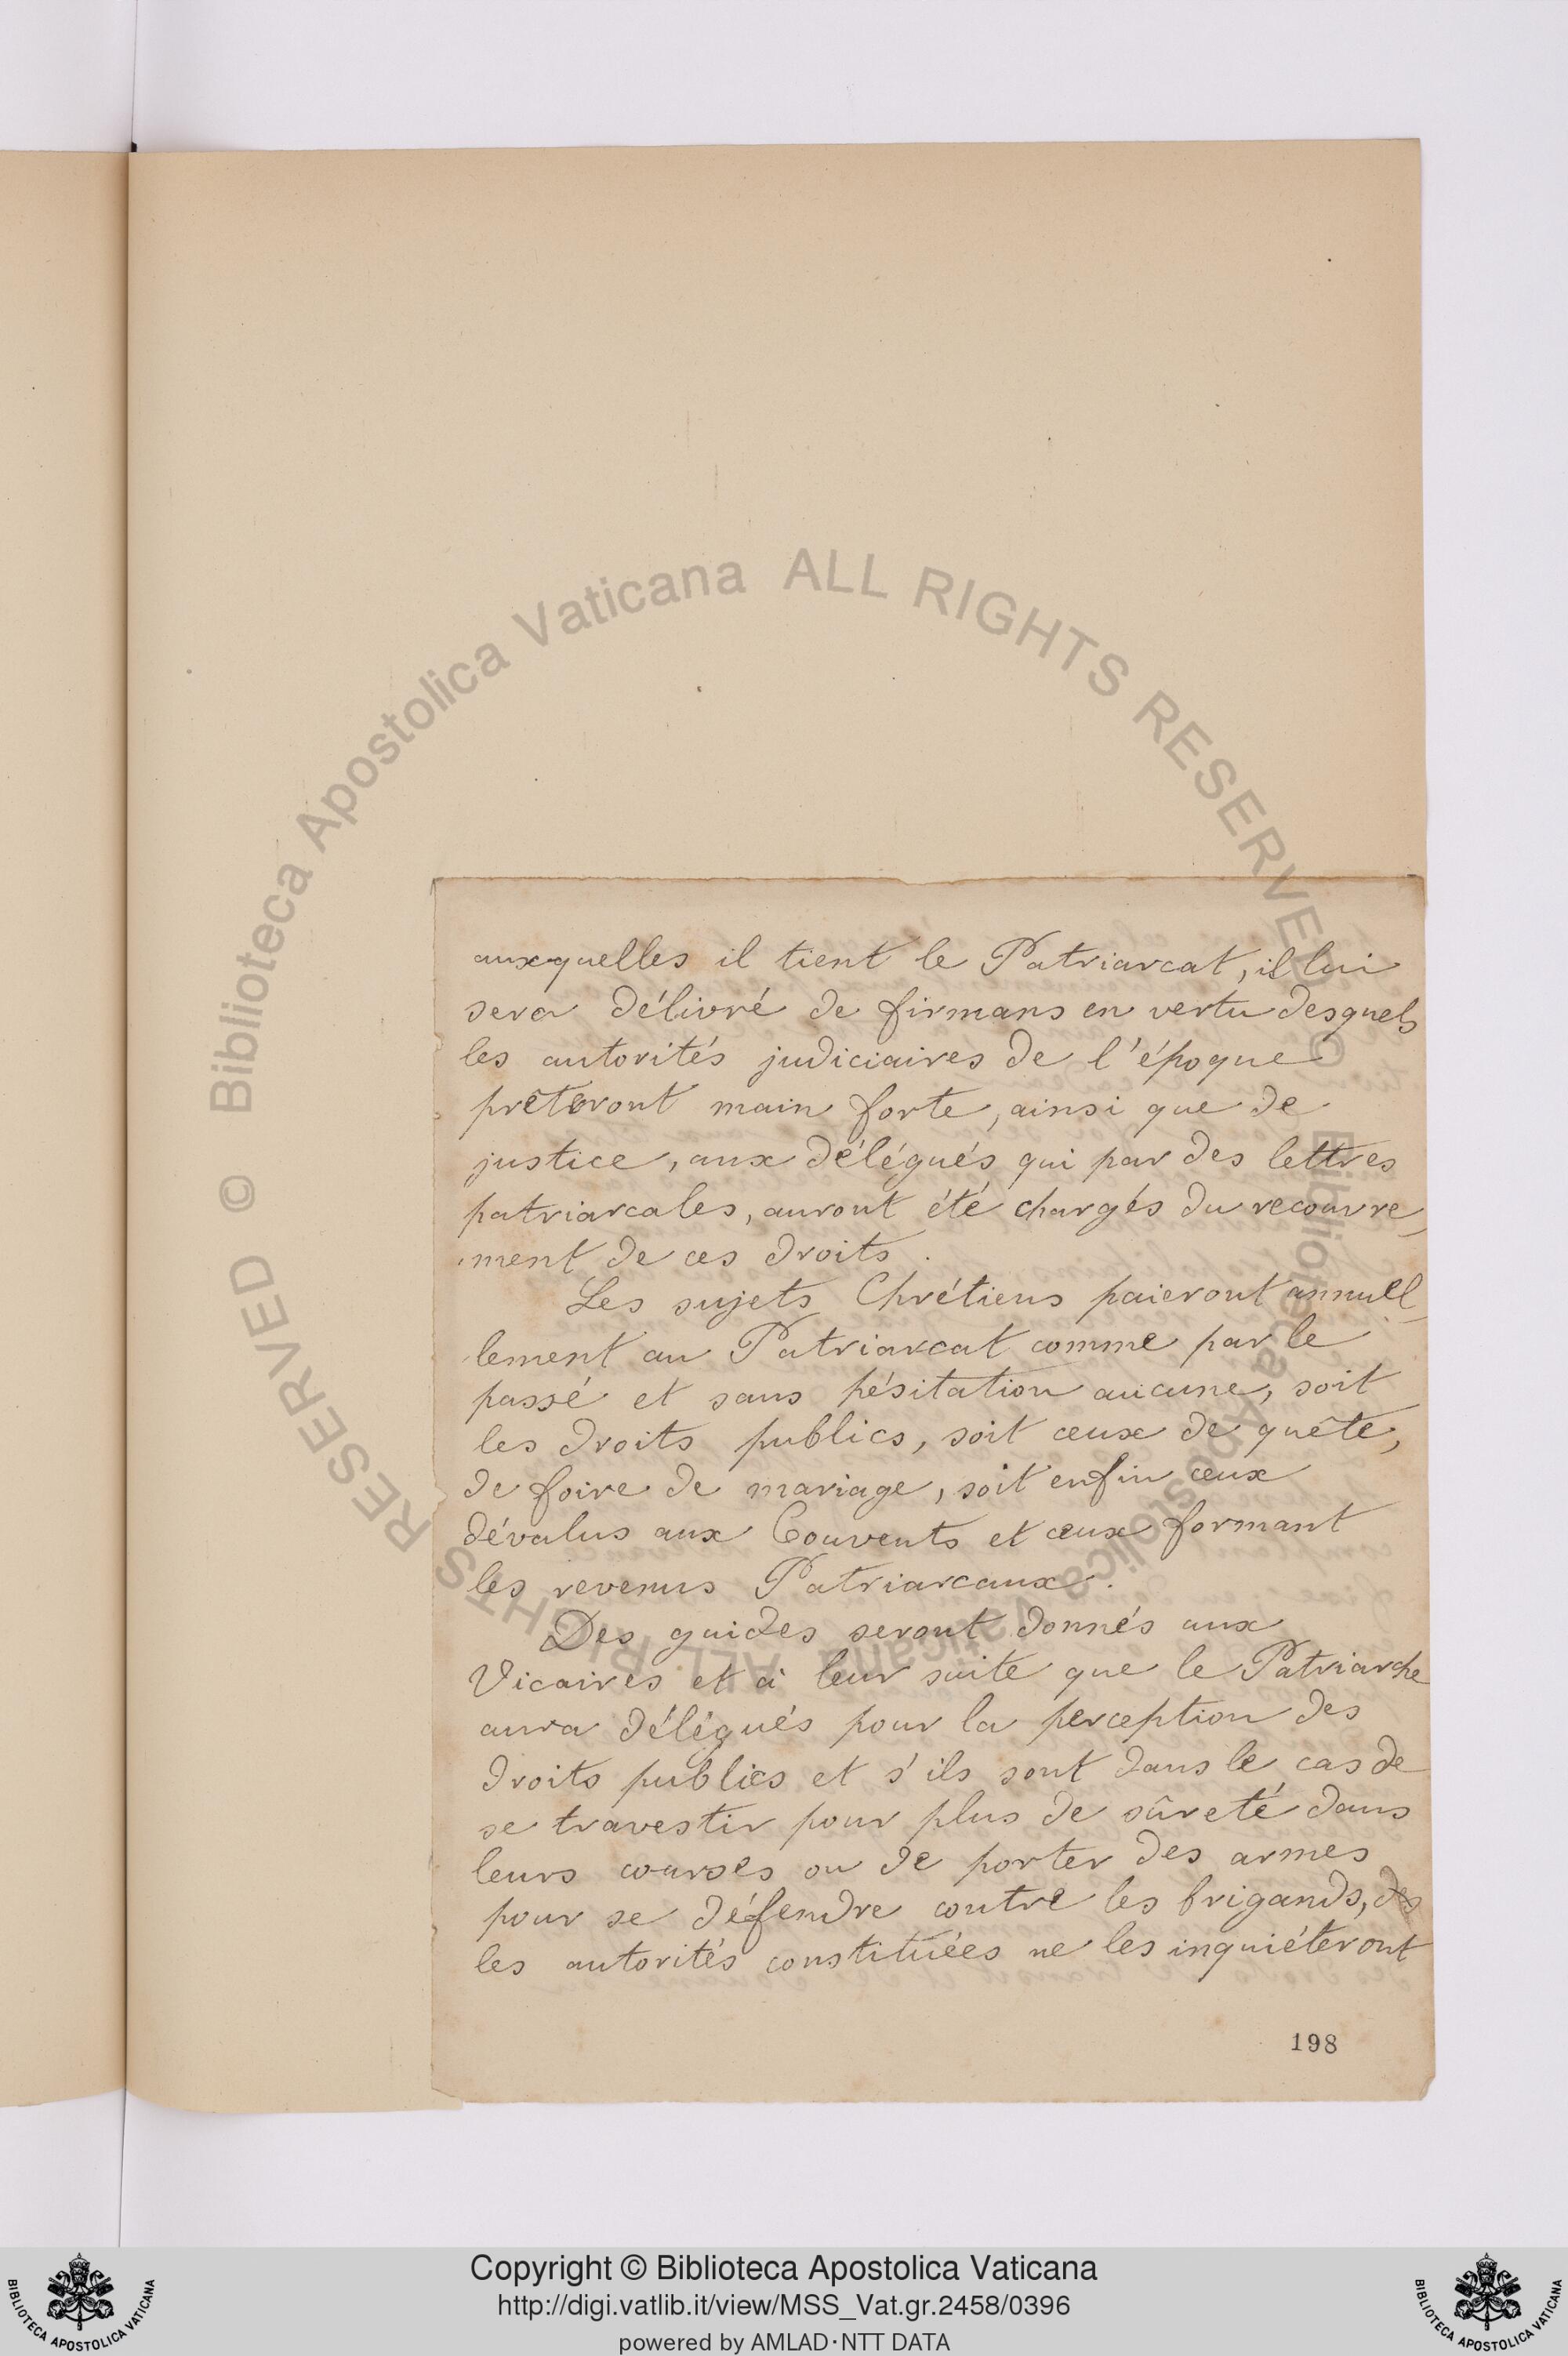 auxquelles il tient le Patriarcat, il lui
sera délivré de firmans en vertu desquels
les autorités judiciaires de l'époque
prêteront main forte, ainsi que de
justice, aux délégués qui par des lettres
patriarcales, auront été chargés du recouvre-
ment de ces droits.
Les sujets Chrétiens paieront annuel-
lement au Patriarcat comme par le
passé et sans hésitation aucune, soit
les droits publics, soit ceux de quête,
de foire de mariage, soit enfin ceux
dévalus aux Couvents et ceux formant
les revenus Patriarcaux.
Des guides seront donnés aux
Vicaires et à leur suite que le Patriarche
aura délégués pour la perception des
droits publics et s'ils sont dans le cas de
se travestir pour plus de sûreté dans
leurs courses ou de porter des armes
pour se défendre contre les brigands,
les autorités constituées ne les inquiéteront
198
© Biblioteca Apostolica Vaticana ALL RIGHTS RESERVED
© Biblioteca Apostolica Vaticana ALL RIGHTS RESERVED
Copyright © Biblioteca Apostolica Vaticana
http://digi.vatlib.it/view/MSS_Vat.gr.2458/0396
powered by AMLAD·NTT DATA
BIBLIOTECA APOSTOLICA VATICANA
BIBLIOTECA APOSTOLICA VATICANA